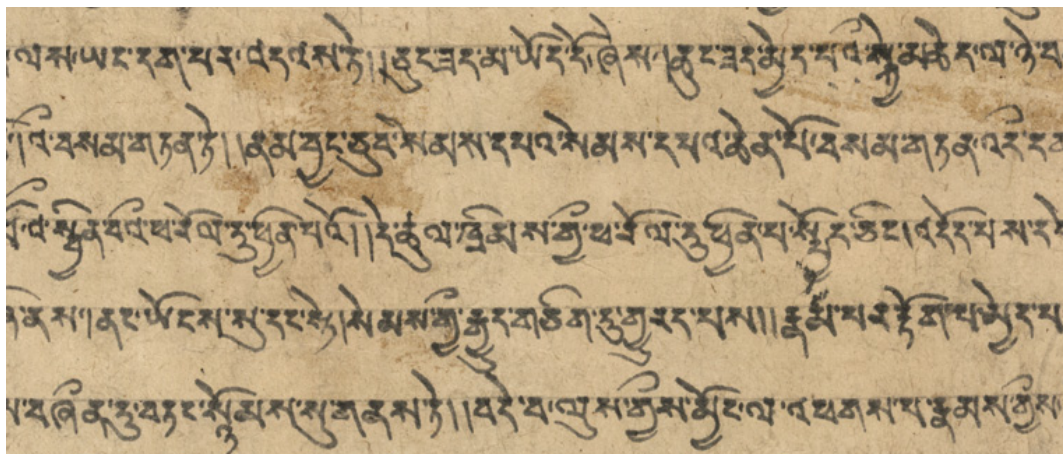 ལས་ཡང་དག་པར་འདའས་ཏེ། །ཅུང་ཟད་མ་ཡེད་དེ་ཞེས། །ཅུང་ཟད་མྱེད་པའི་སྐྱེ་མཆེད་ལ་ཉེ་བ
བསམ་གཏན་ཏེ། །རྣམ་བྱང་ཆུབ་སེམས་དཔའ་སེམས་དཔའ་ཆེན་པོ་བསམ་གཏན་འདི་དག
སྦྱིན་བའི་ཕ་རོལ་ཏུ་ཕྱིན་པའོ། །དེ་ཚུལ་ཁྲིམས་ཀྱི་ཕ་རོལ་ཏུ་ཕྱིན་པ་སྤྱོད་ཅིང་། འདོད་པས་དབེ
ནས། །ནང་ཡོངས་སུ་དང་སྟེ། སེམས་ཀྱི་རྒྱུད་གཅིག་ཏུ་གྱུརད་པས། །རྣམ་པར་རྟོག་པ་མྱེད་པ
བཞིན་དུ་བཏང་སྙོམས་སུ་གནས་ཏེ། །བདེ་བ་ལུས་ཀྱིས་མྱོང་ལ་འཕགས་པ་རྣམས་ཀྱིས